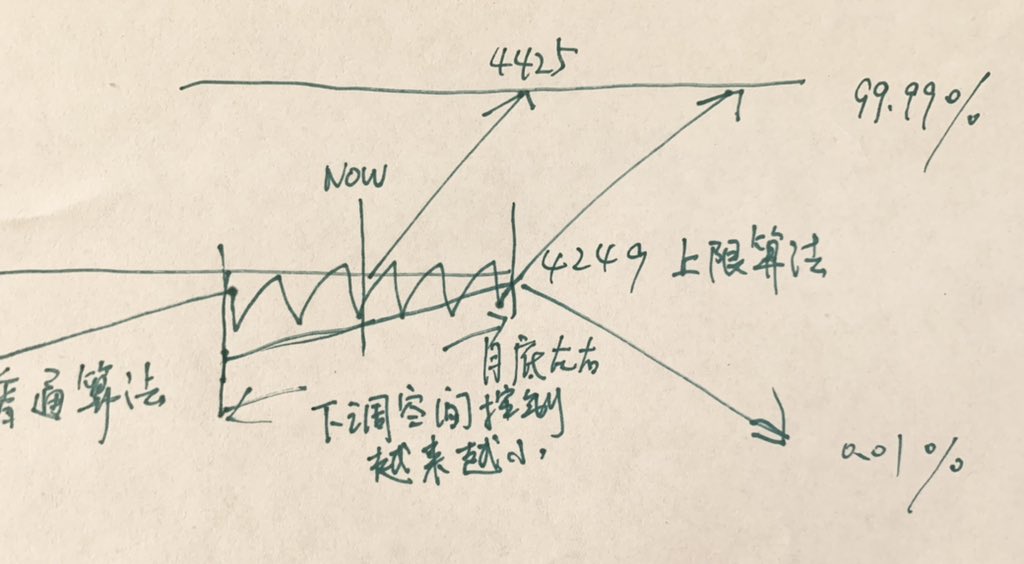 4425
99.99%
NOW
4249 上限算法
月底左右
普通算法
下调空间控制
越来越小.
0.01%